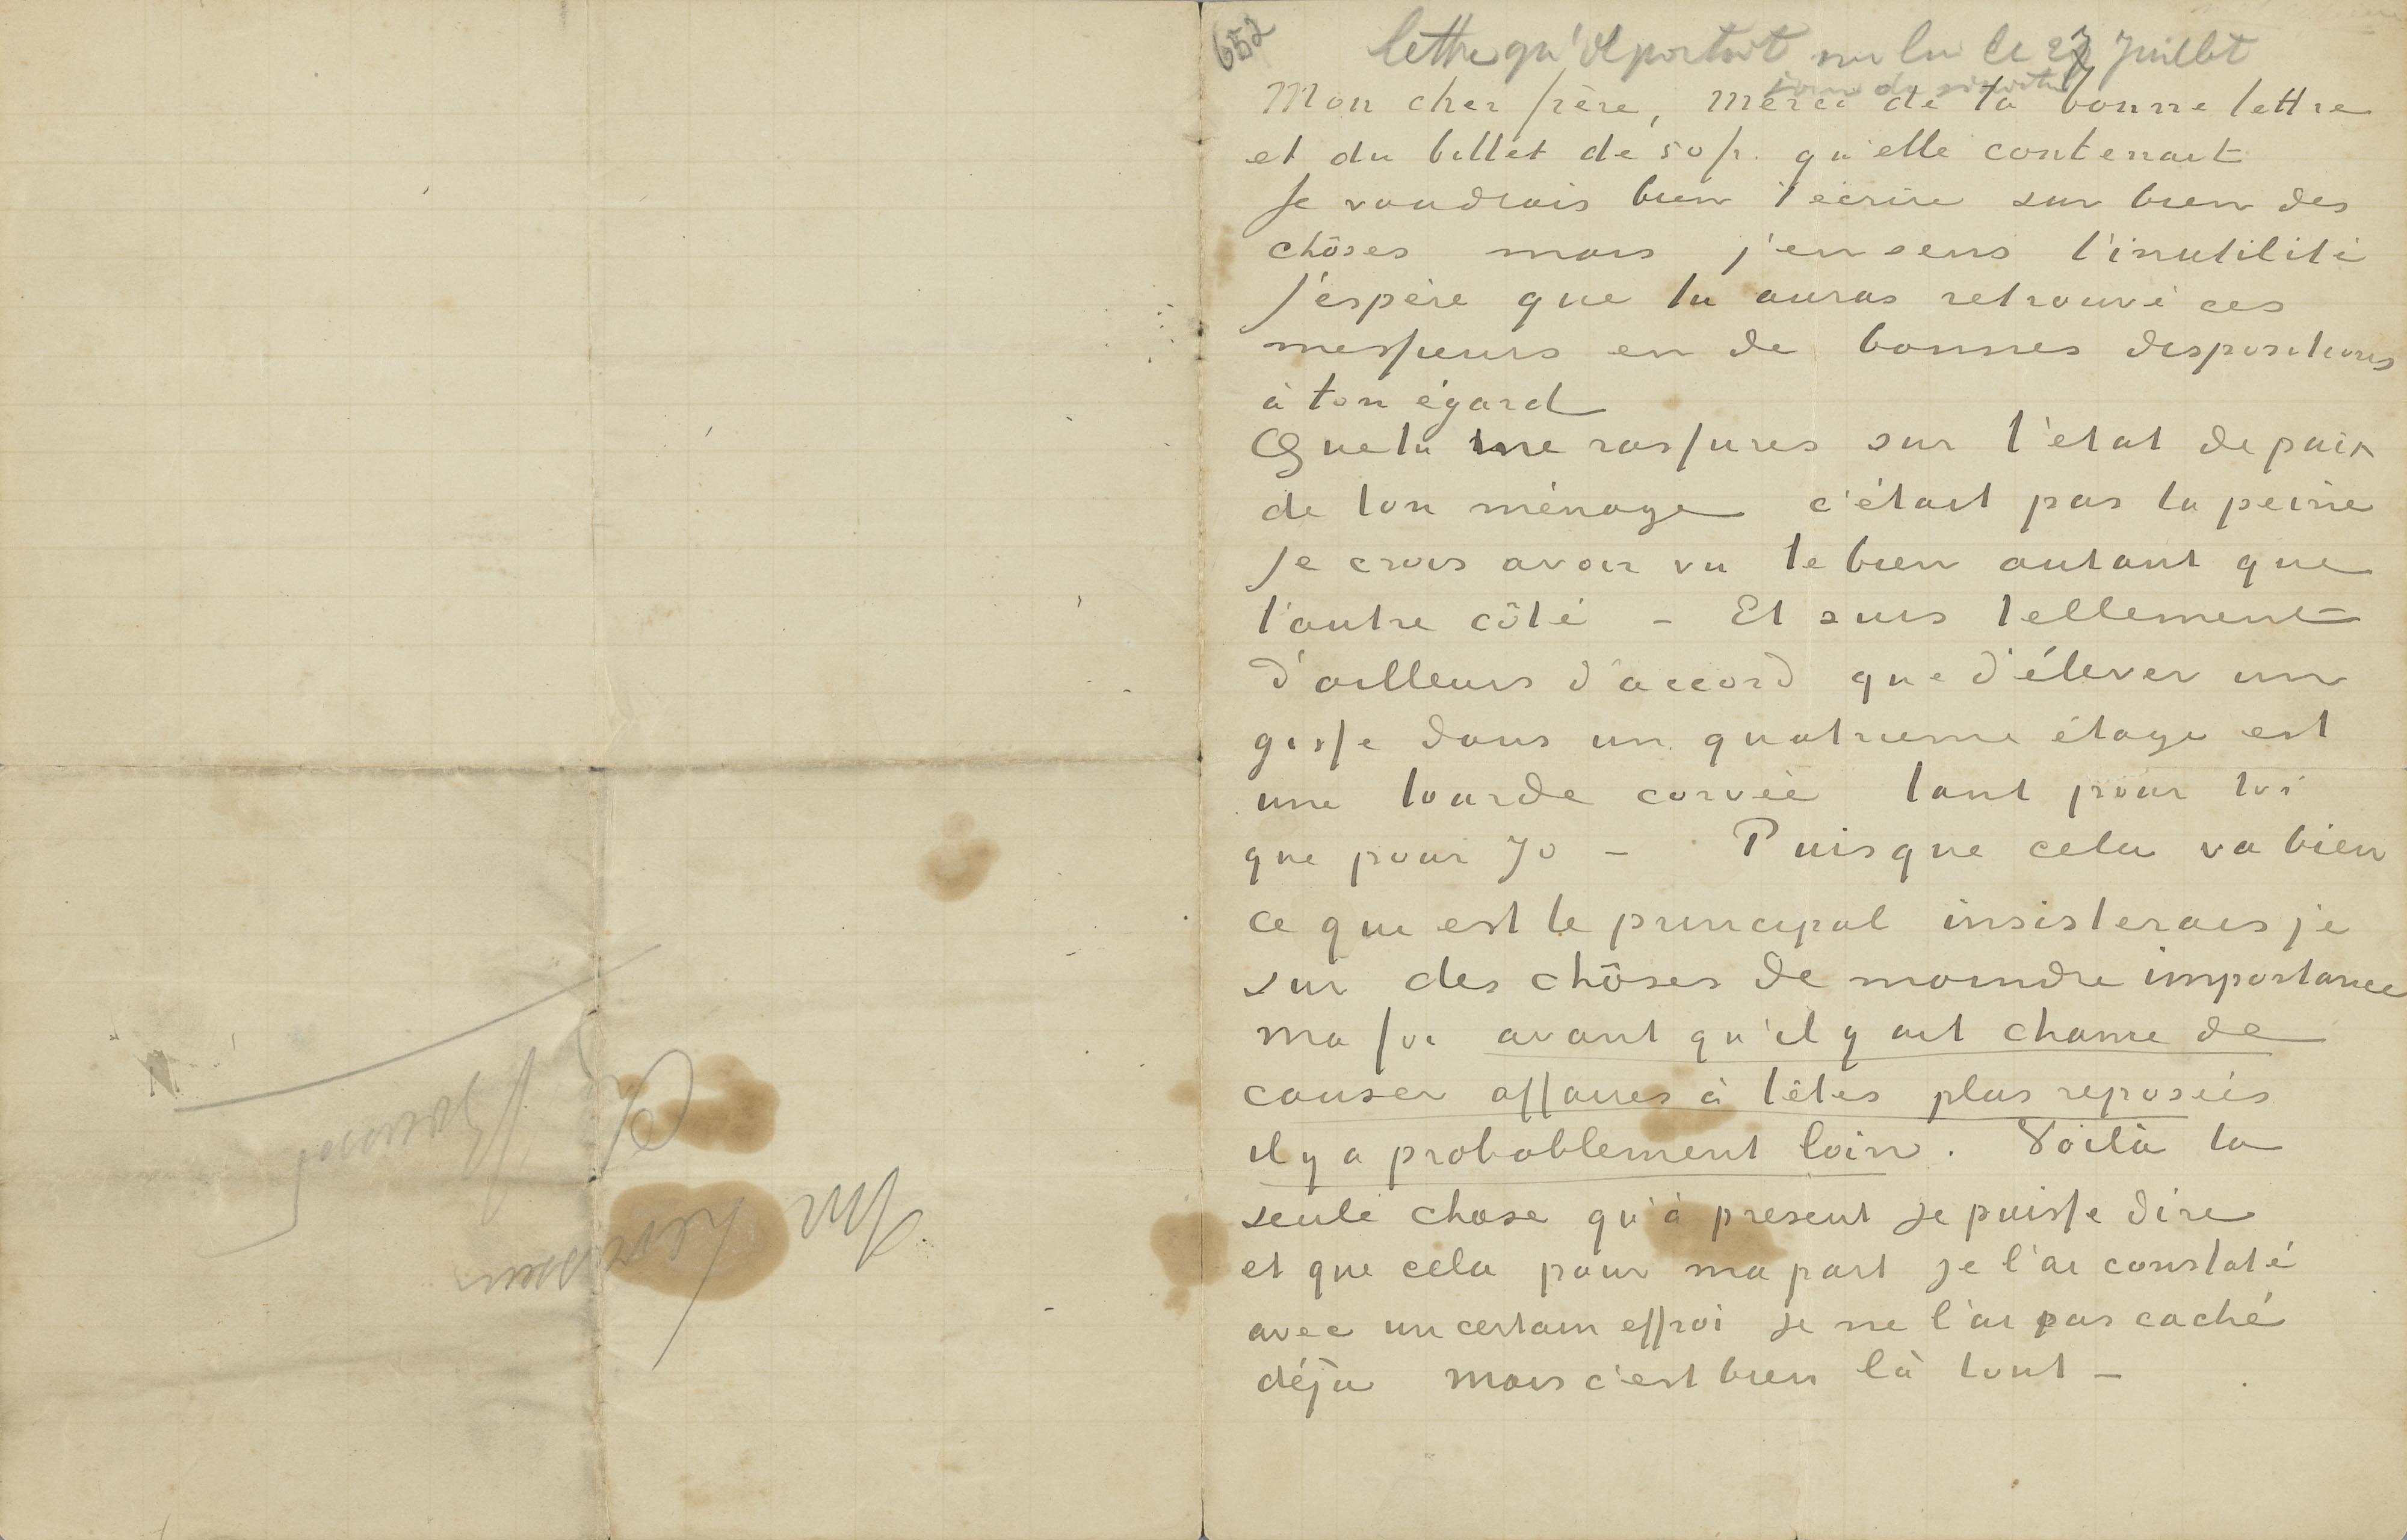 652
lettre qu'il portait sur lui le 27 Juillet
jour du
Mon cher frère, merci de ta bonne lettre
et du billet de 50 fr. qu'elle contenait
Je voudrais bien t'ecrire sur bien des
chôses mais j'en sens l'inutilité
J'espère que tu auras retrouvé ces
messieurs en de bonnes dispositions
à ton égard
Que tu me rassures sur l'etat de paix
de ton ménage c'était pas la peine
Je crois avoir vu le bien autant que
l'autre côté – Et suis tellement
d'ailleurs d'accord que d'élever un
gosse dans un quatrieme étage est
une lourde corvée tant pour toi
que pour Jo – Puisque cela va bien
ce qui est le principal insisterais je
sur des chôses de moindre importance
ma foi avant qu'il y ait chance de
causer affaires à têtes plus reposées
il y a probablement loin. Voilà la
seule chose qu'à présent je puisse dire
et que cela pour ma part je l'ai constaté
avec un certain effroi je ne l'ai pas caché
déjà mais c'est bien là tout –
Mr